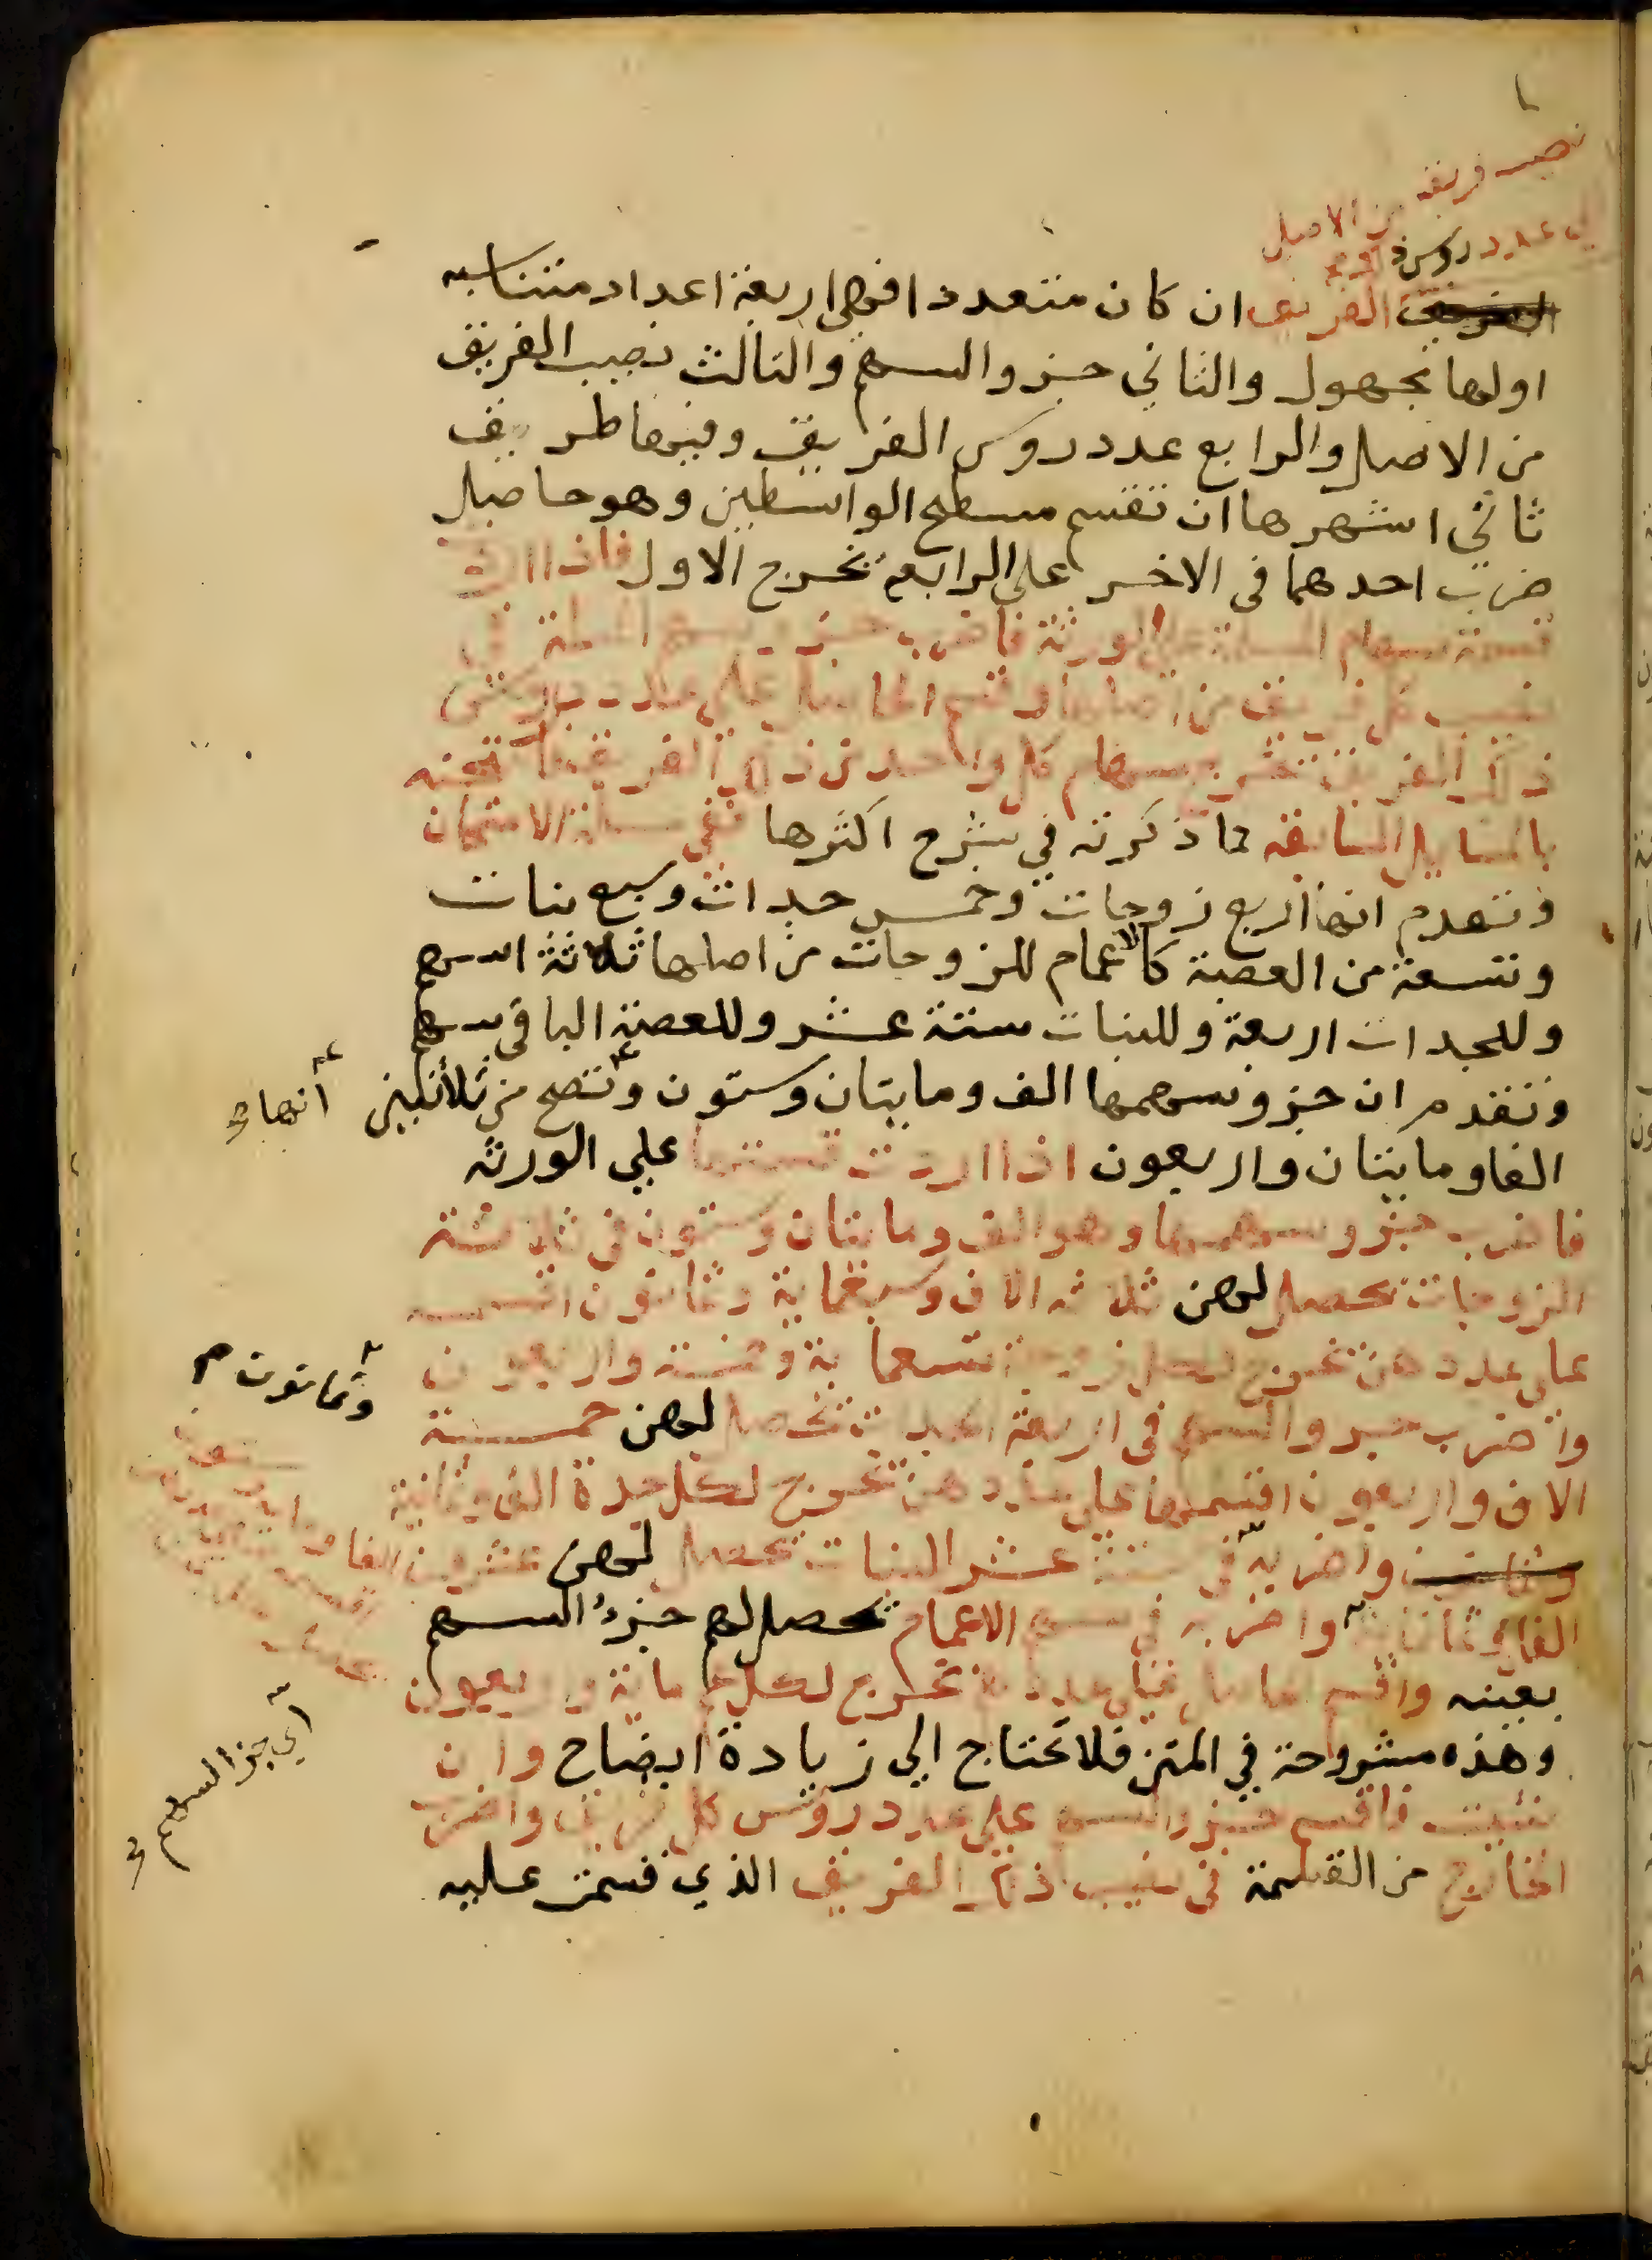 نصيب فريقه من الاصل
الى عدد روس
الفريق ان كان متعددا فهي اربعة اعداد متناسبه
اولها مجهول والثاني جزو السهم والثالث نصيب الفريق
من الاصل والرابع عدد روس الفريق وفيها طريق
ثاني اشهرها ان تقسم مسطح الواسطين وهو حاصل
ضرب احدهما في الاخر على الرابع يخرج الاول فاذا اردت
قسمة سهام المسئلة على الورثة فاضرب جزو سهم المسئلة في
نصيب كل فريق من اصلها واقسم الحاصل على عدد روس
ذلك الفريق تخرج سهام كل واحد من ذلك الفريق
بالمسايل السابقه مما ذكرته في شرح اكثرها ففي مسئلة الامتحان
وتقدم انها اربع زوجات وخمس جدات وسبع بنات
وتسعة من العصبة كالاعمام للزوجات من اصلها ثلاثة اسهم
وللجدات اربعة وللبنات ستة عشر وللعصبة الباقي سهم
وتقدم ان جزو سهمها الف ومايتان وستون وتصح من ثلاثين
انها
الفا ومايتان واربعون اذا اردت قسمتها علي الورثه
فاضرب جزو سهمها وهو الف ومايتان وستون في ثلاثة
الزوجات يحصل لهن ثلاثه الاف وسبعماية وثمانون اقسمه
على عددهن تخرج لكل زوجة تسعماية وخمسة واربعون
واضرب جزو السهم في اربعة الجدات تحصل لهن خمسة
وثمانون
الاف واربعون اقسمها على عددهن تخرج لكل جدة الف وثمانية
واضربه في ستة عشر البنات تحصل لهن عشرون الفا وماية وستون
الفان وثمانماية واضربه في سهم الاعمام تحصل لهم جزؤ السهم
بعينه واقسم الحاصل على عددهم تخرج لكل عم ماية واربعون
وهذه مشروحة في المتن فلا تحتاج الي زيادة ايضاح وان
اي جز السهم
شيت فاقسم جزو السهم على عدد روس كل فريق واضرب
الخارج من القسمة في نصيب ذلك الفريق الذي قسمت عليه